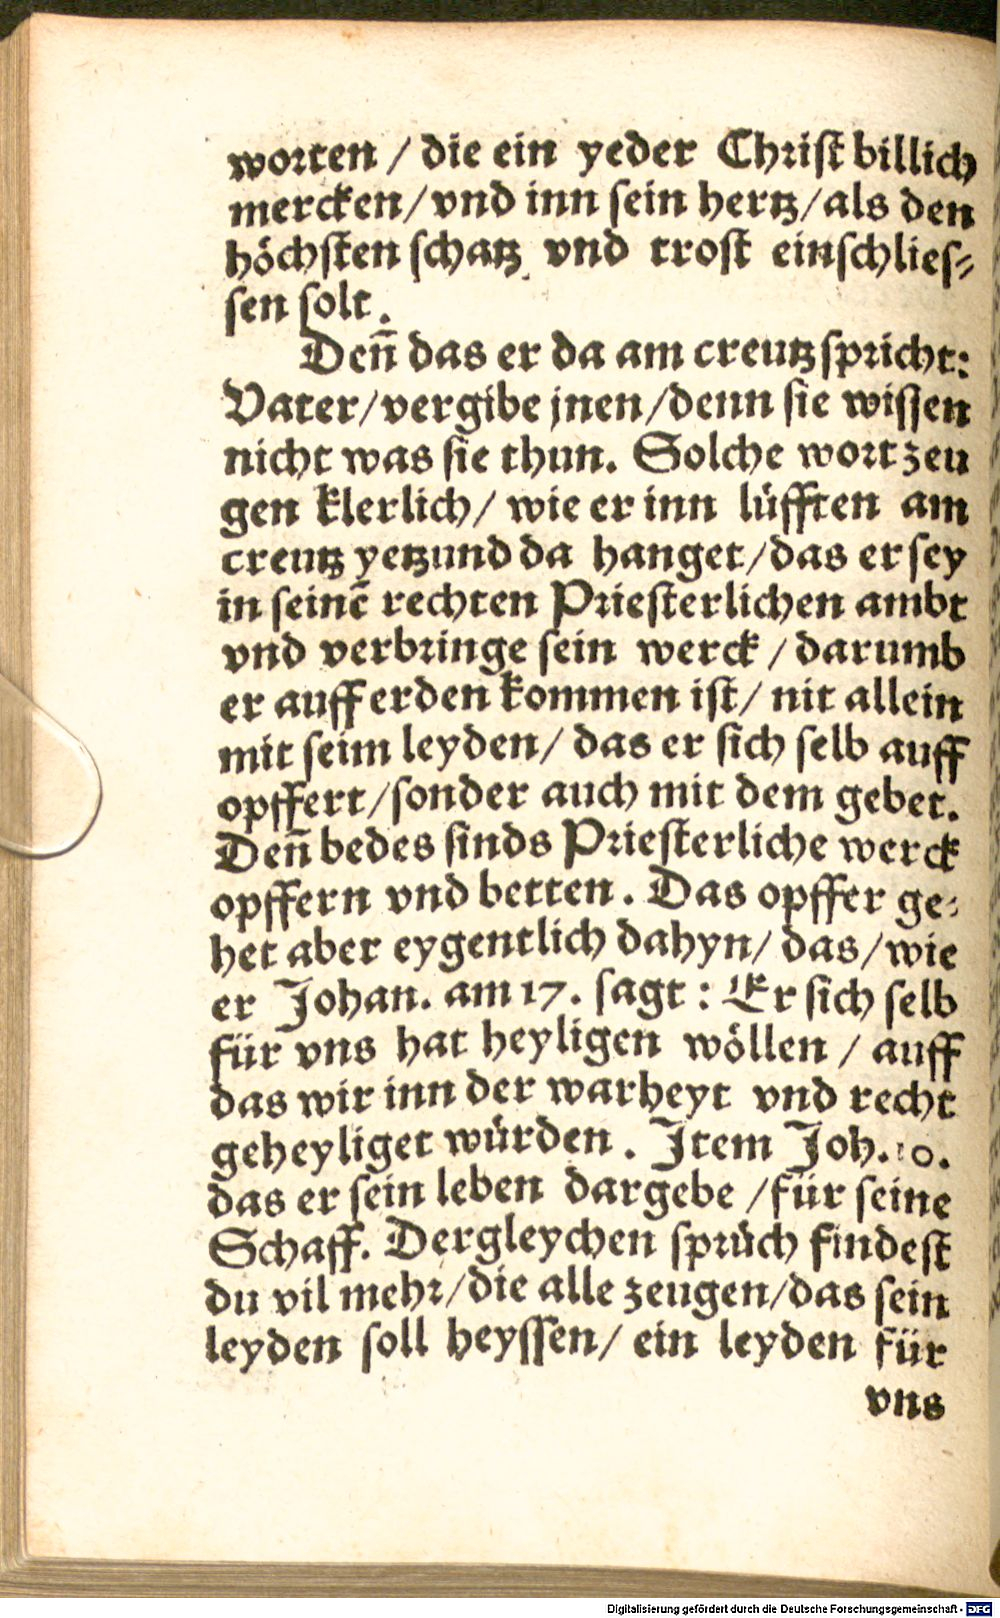 worten / die ein yeder Chriſt billich
mercken / vnd inn ſein hertz / als den
höchſten ſchatz vnd troſt einſchlieſ⸗
ſen ſolt.
Deñ das er da am creutz ſpricht:
Vater / vergibe jnen / denn ſie wiſſen
nicht was ſie thun. Solche wort zeu
gen klerlich / wie er inn lüfften am
creutz yetzund da hanget / das er ſey
in ſeinē rechten Prieſterlichen ambt
vnd verbringe ſein werck / darumb
er auff erden kommen iſt / nit allein
mit ſeim leyden / das er ſich ſelb auff
opffert / ſonder auch mit dem gebet.
Deñ bedes ſinds Prieſterliche werck
opffern vnd betten. Das opffer ge⸗
het aber eygentlich dahyn / das / wie
er Johan. am 17. ſagt: Er ſich ſelb
für vns hat heyligen wöllen / auff
das wir inn der warheyt vnd recht
geheyliget würden. Item Joh. 10.
das er ſein leben dargebe / für ſeine
Schaff. Dergleychen ſprüch findeſt
du vil mehr / die alle zeugen / das ſein
leyden ſoll heyſſen / ein leyden für
vns
Digitalisierung gefördert durch die Deutsche Forschungsgemeinschaft - DFG